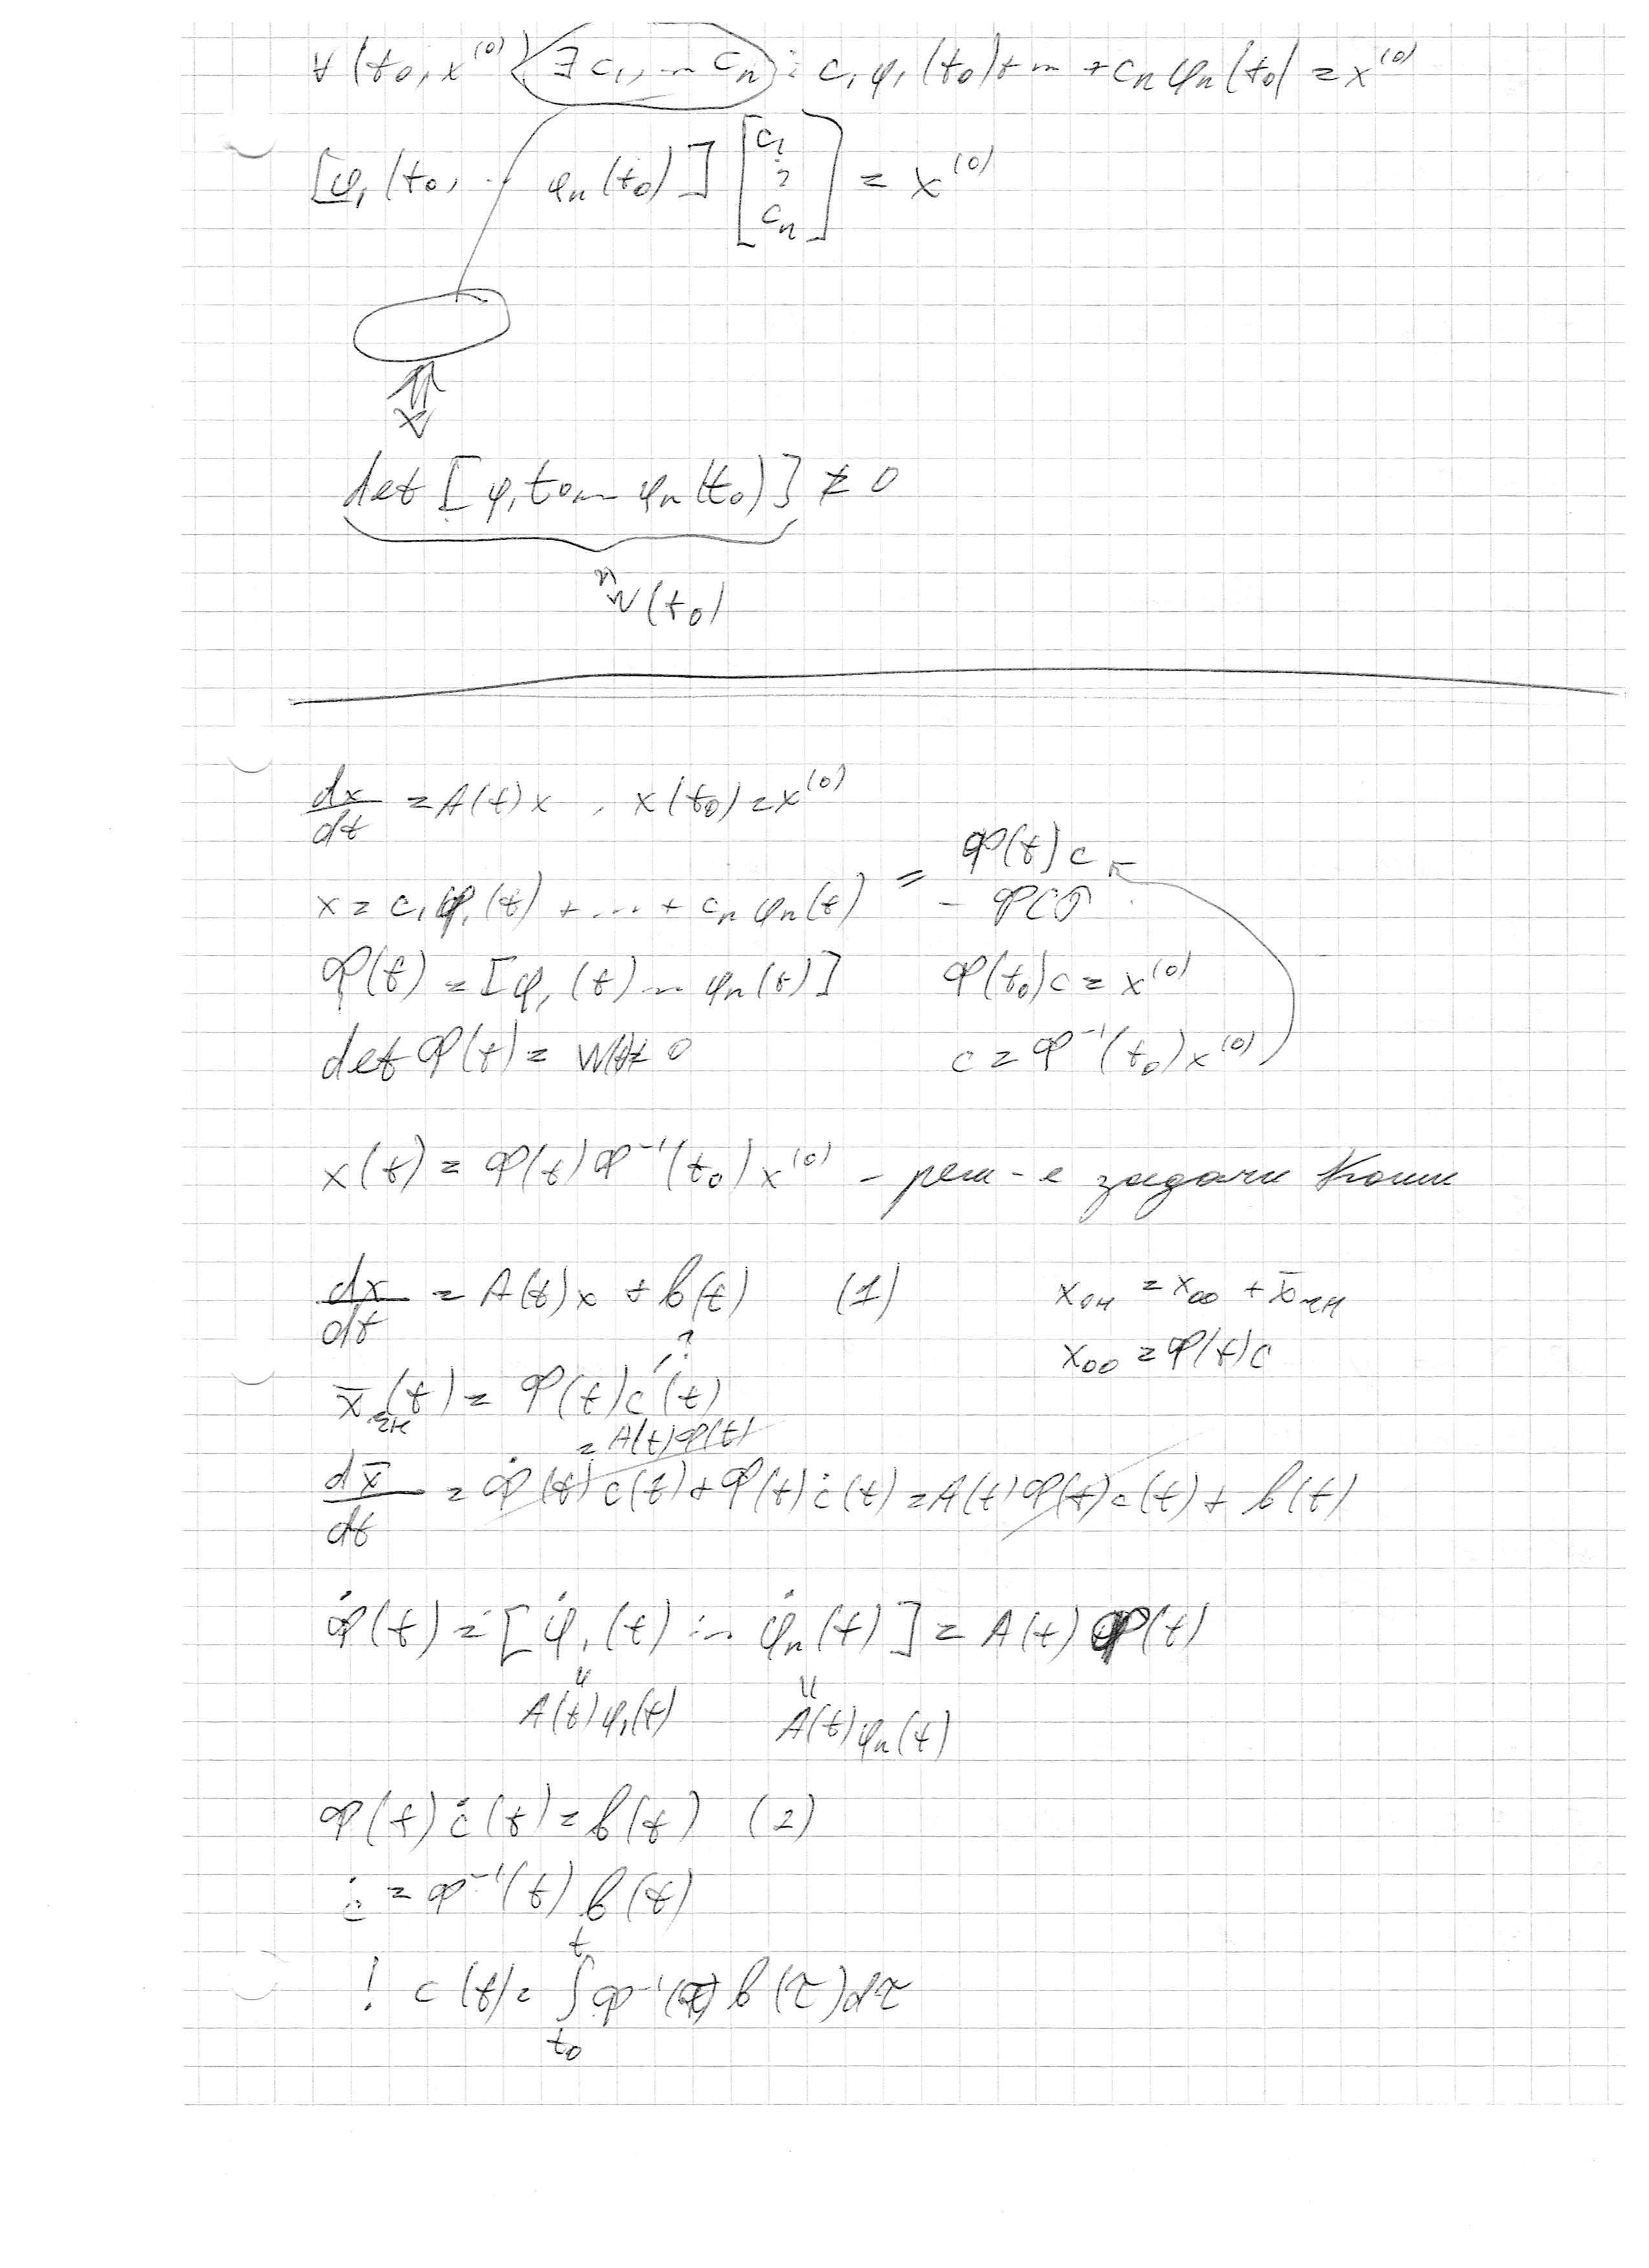 ∀(t₀, x⁽⁰⁾) ∃ c₁, ... cₙ : c₁φ₁(t₀)+ ... + cₙφₙ(t₀) = x⁽⁰⁾
[φ₁(t₀, ... φₙ(t₀)] [c₁ ⋮ cₙ] = x⁽⁰⁾
⇕
det [φ₁t₀ ... φₙ(t₀)] ≠ 0
W(t₀)
dx/dt = A(t)x, x(t₀) = x⁽⁰⁾
x = c₁φ₁(t) + ... + cₙφₙ(t) = Φ(t)c
– ФСР
Φ(t) = [φ₁(t) ... φₙ(t)] Φ(t₀)c = x⁽⁰⁾
det Φ(t) = W(t) ≠ 0 c = Φ⁻¹(t₀)x⁽⁰⁾
x(t) = Φ(t)Φ⁻¹(t₀)x⁽⁰⁾ – реш-е задачи Коши
dx/dt = A(t)x + b(t) (1) xон = xоо + x̄чн
xоо = Φ(t)c
?
x̄чн(t) = Φ(t)c(t)
= A(t)Φ(t)
dx̄/dt = Φ̇(t)c(t) + Φ(t)ċ(t) = A(t)Φ(t)c(t) + b(t)
Φ̇(t) = [φ̇₁(t) ... φ̇ₙ(t)] = A(t)Φ(t)
A(t)φ₁(t) A(t)φₙ(t)
Φ(t)ċ(t) = b(t) (2)
ċ = Φ⁻¹(t) b(t)
! c(t) = ∫ₜ₀ᵗ Φ⁻¹(τ) b(τ)dτ